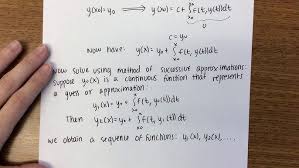 y(x₀) = y₀ ⟹ y(x₀) = c + ∫_{x₀}^{x₀} f(t, y(t))dt
0
c = y₀
Now have: y(x) = y₀ + ∫_{x₀}^{x} f(t, y(t))dt
Now solve using method of successive approximations:
Suppose y₀(x) is a continuous function that represents
a guess or approximation:
y₁(x) = y₀ + ∫_{x₀}^{x} f(t, y₀(t))dt
Then y₂(x) = y₀ + ∫_{x₀}^{x} f(t, y₁(t))dt
we obtain a sequence of functions: y₁(x), y₂(x), ....,